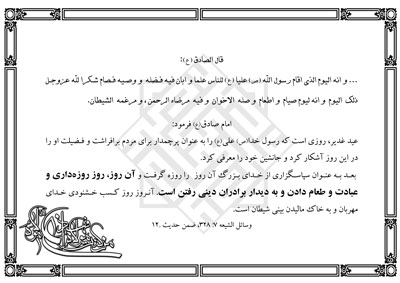 قال الصادق(ع):
... و انه الیوم الذی اقام رسول الله (ص) علیا (ع) للناس علما و ابان فیه فضله و وصیه فصام شکرا لله عزوجل
ذلک الیوم و انه لیوم صیام و اطعام و صله الاخوان و فیه مرضاه الرحمن، و مرغمه الشیطان.
امام صادق(ع) فرمود:
عید غدیر، روزی است که رسول خدا(ص) علی(ع) را به عنوان پرچمدار برای مردم برافراشت و فضیلت او را
در این روز آشکار کرد و جانشین خود را معرفی کرد.
بعد به عنوان سپاسگزاری از خدای بزرگ آن روز را روزه گرفت و آن روز، روز روزه‌داری و
عبادت و طعام دادن و به دیدار برادران دینی رفتن است. آنروز روز کسب خشنودی خدای
مهربان و به خاک مالیدن بینی شیطان است.
وسائل الشیعه ۷: ۳۲۸، ضمن حدیث ۱۲.